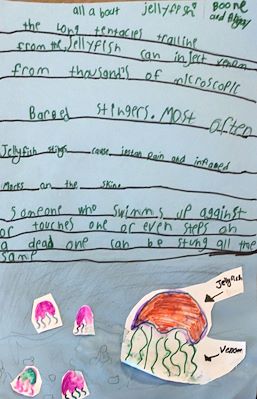 all about jellyfish Boone
the long tentacles trailing
from the jellyfish can inject venom
from thousands of microscopic
Barbed stingers. Most often
Jellyfish stings cause instan pain and inflamed
Marks on the skin.
Someone who swimms up against
or touches one or even steps on
a dead one can be stung all the
same
Jellyfish
Venom